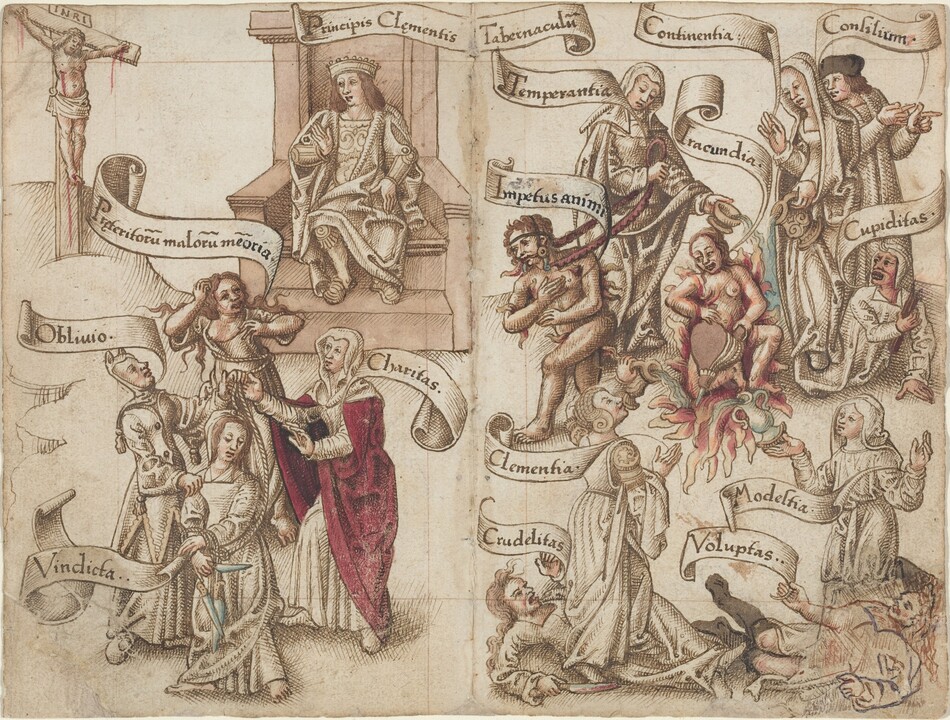 INRI
Principis Clementis Tabernaculũ
Preteritorũ malorũ meõria.
Obliuio.
Charitas.
Vindicta..
Continentia:
Consilium.
Temperantia
Iracundia.
Impetus animi
Cupiditas.
Clementia.
Modestia
Crudelitas
Voluptas..